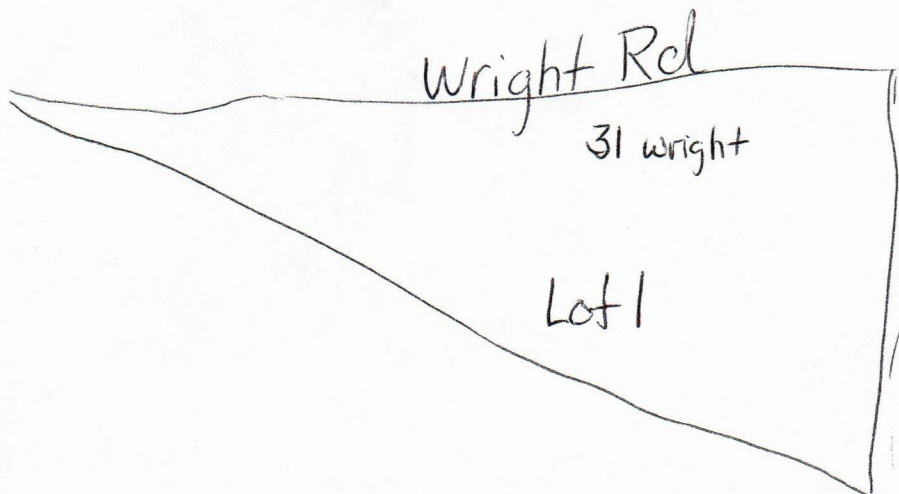 Wright Rd
31 wright
Lot 1